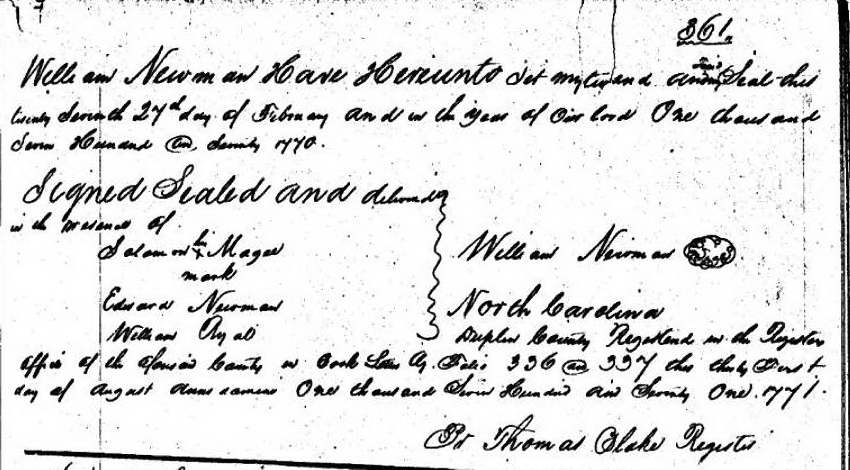 361.
William Newman Have Hereunto Set my hand and Seal this
twenty Seventh 27th day of February and in the Year of Our Lord One thousand
Seven Hundred and Seventy 1770.
Signed Sealed and delivered
in the presence of
Solomon his x Magee
mark
William Newman
Edward Newman
North Carolina
William Ryal
Duplin County Registered in the Registers
Office of the County in Book Folio 336 and 337 this thirty First
day of August One thousand Seven Hundred and Seventy One. 1771.
Pr Thomas Blake Register